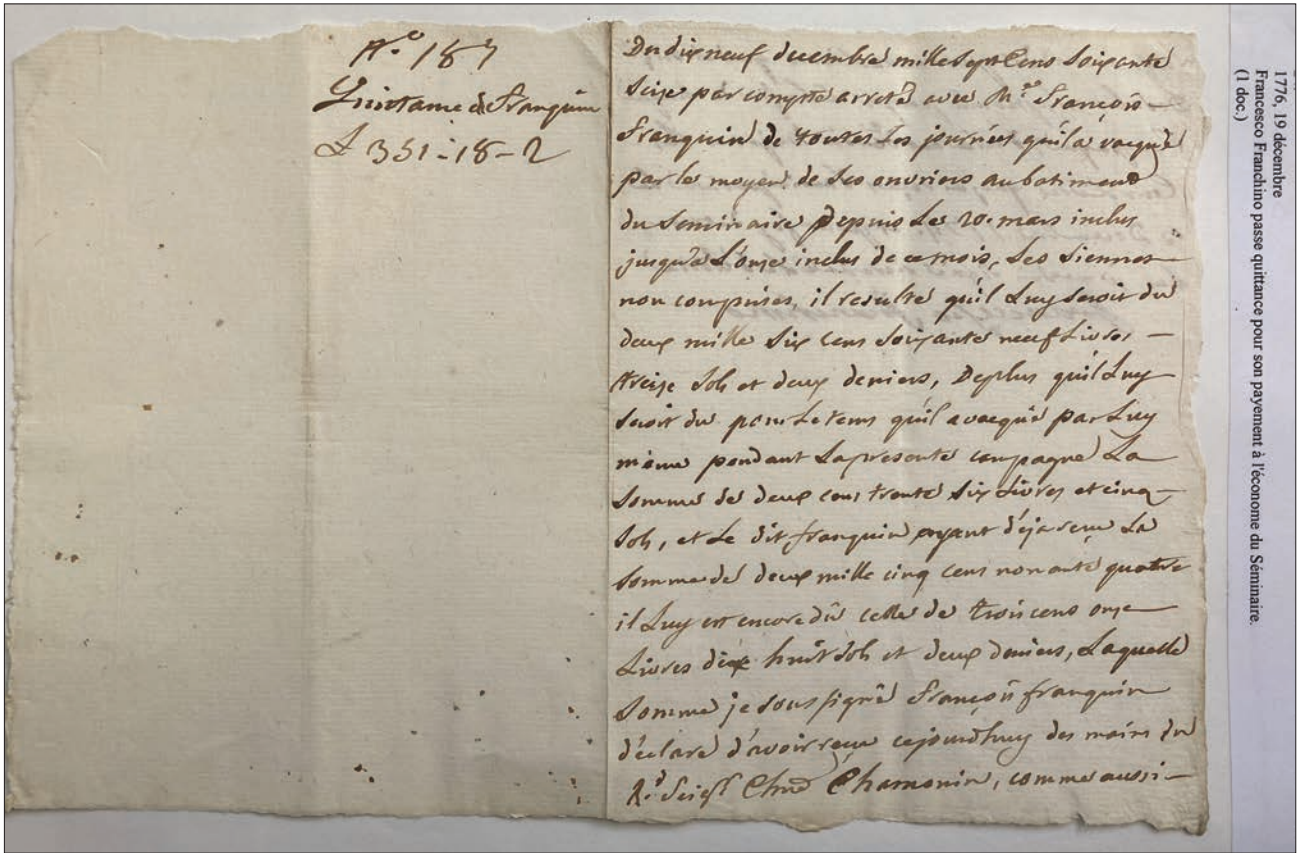 N.o 187
Quittance de Franquin
L 351-18-2
Du dix neuf decembre mille Sept Cens Soixante
Seize par compte arreté avec M.e François
Franquin de toutes Les journées qu'il a vacqué
par le moyen de Ses ouvriers au batiment
du Seminaire Depuis Les 20. mars inclus
jusqu'a L'onze inclus de ce mois, Les Siennes
non comprises, il resulte qu'il Luy Seroit du
deux mille Six cens Soixante neuf Livres
treize Sols et deux deniers, De plus qu'il Luy
Seroit du pour Le tems qu'il a vacqué par Luy
même pendant La presente campagne La
Somme de deux cens trente Six Livres et cinq
Sols, et Le dit franquin ayant déja reçu La
Somme de deux mille cinq cens nonante quatre
il Luy est encore dû celle de trois cens onze
Livres dix huit Sols et deux deniers, Laquelle
Somme je Soussigné François franquin
déclare d'avoir reçu cejourdhuy des mains du
R.d Seig.r Chne Chamonin, comme aussi
1776, 19 décembre
Francesco Franchino passe quittance pour son payement à l'économe du Séminaire.
(1 doc.)